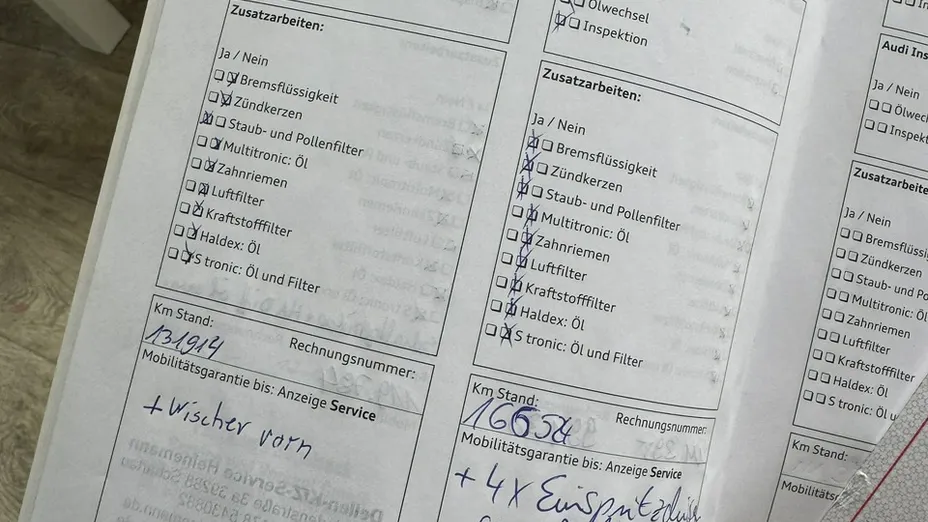 Zusatzarbeiten:
Ja / Nein
Bremsflüssigkeit
Zündkerzen
Staub- und Pollenfilter
Multitronic: Öl
Zahnriemen
Luftfilter
Kraftstofffilter
Haldex: Öl
S tronic: Öl und Filter
Km Stand:
131914
Rechnungsnummer:
Mobilitätsgarantie bis: Anzeige Service
+ Wischer vorn
Ölwechsel
Inspektion
Zusatzarbeiten:
Ja / Nein
Bremsflüssigkeit
Zündkerzen
Staub- und Pollenfilter
Multitronic: Öl
Zahnriemen
Luftfilter
Kraftstofffilter
Haldex: Öl
S tronic: Öl und Filter
Km Stand:
Rechnungsnummer:
Mobilitätsgarantie bis: Anzeige Service
+ 4 x Einspritzdüs
Audi Ins
Ja / Nein
Ölwechs
Inspekt
Zusatzarbeite
Ja / Nein
Bremsflüssig
Zündkerzen
Staub- und Po
Multitronic: Öl
Zahnriemen
Luftfilter
Kraftstofffilter
Haldex: Öl
S tronic: Öl u
Km Stand:
Mobilitäts